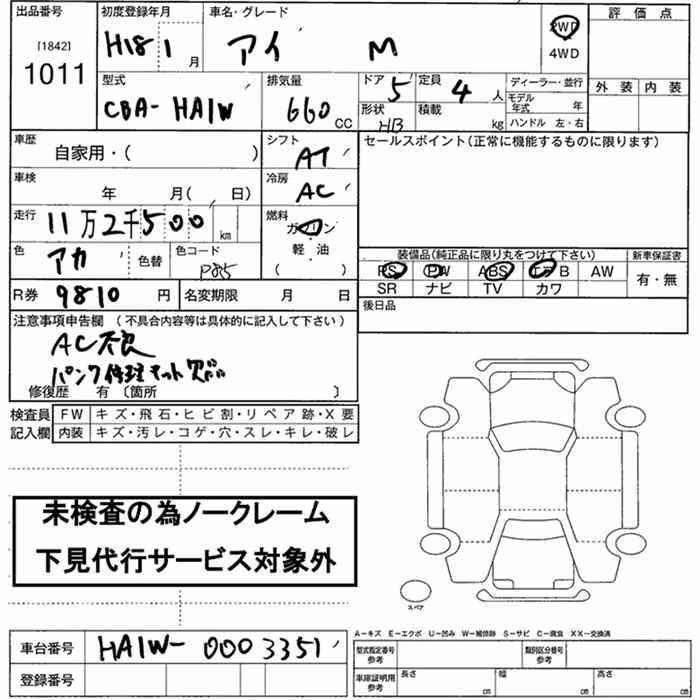 出品番号 初度登録年月 車名・グレード 2WD 評価点
[1842] H18 1月 アイ M 4WD
1011 型式 排気量 ドア 5 定員 4人 ディーラー・並行 外装 内装
CBA-HA1W 660 CC 形状 HB 積載 kg モデル年式 年
ハンドル 左・右
車歴 自家用・( ) シフト AT セールスポイント(正常に機能するものに限ります)
車検 年 月( 日) 冷房 AC
走行 11万2千500km 燃料 ガソリン
色 アカ 色替 色コード P85 軽・油 装備品(純正品に限り丸をつけて下さい) 新車保証書
( ) PS PW ABS エアB AW 有・無
R券 9810円 名変期限 月 日 SR ナビ TV カワ
注意事項申告欄 (不具合内容等は具体的に記入して下さい) 後日品
AC不良
パンク修理キット欠品
修復歴 有 〔箇所 〕
検査員 FW キズ・飛石・ヒビ割・リペア跡・X要
記入欄 内装 キズ・汚レ・コゲ・穴・スレ・キレ・破レ
未検査の為ノークレーム
下見代行サービス対象外
スペア
A-キズ E-エクボ U-凹み W-補修跡 S-サビ C-腐食 XX-交換済
車台番号 HA1W-0003351 型式指定番号 参考 類別区分番号 参考
登録番号 車庫証明用 参考 長さ cm 幅 cm 高さ cm